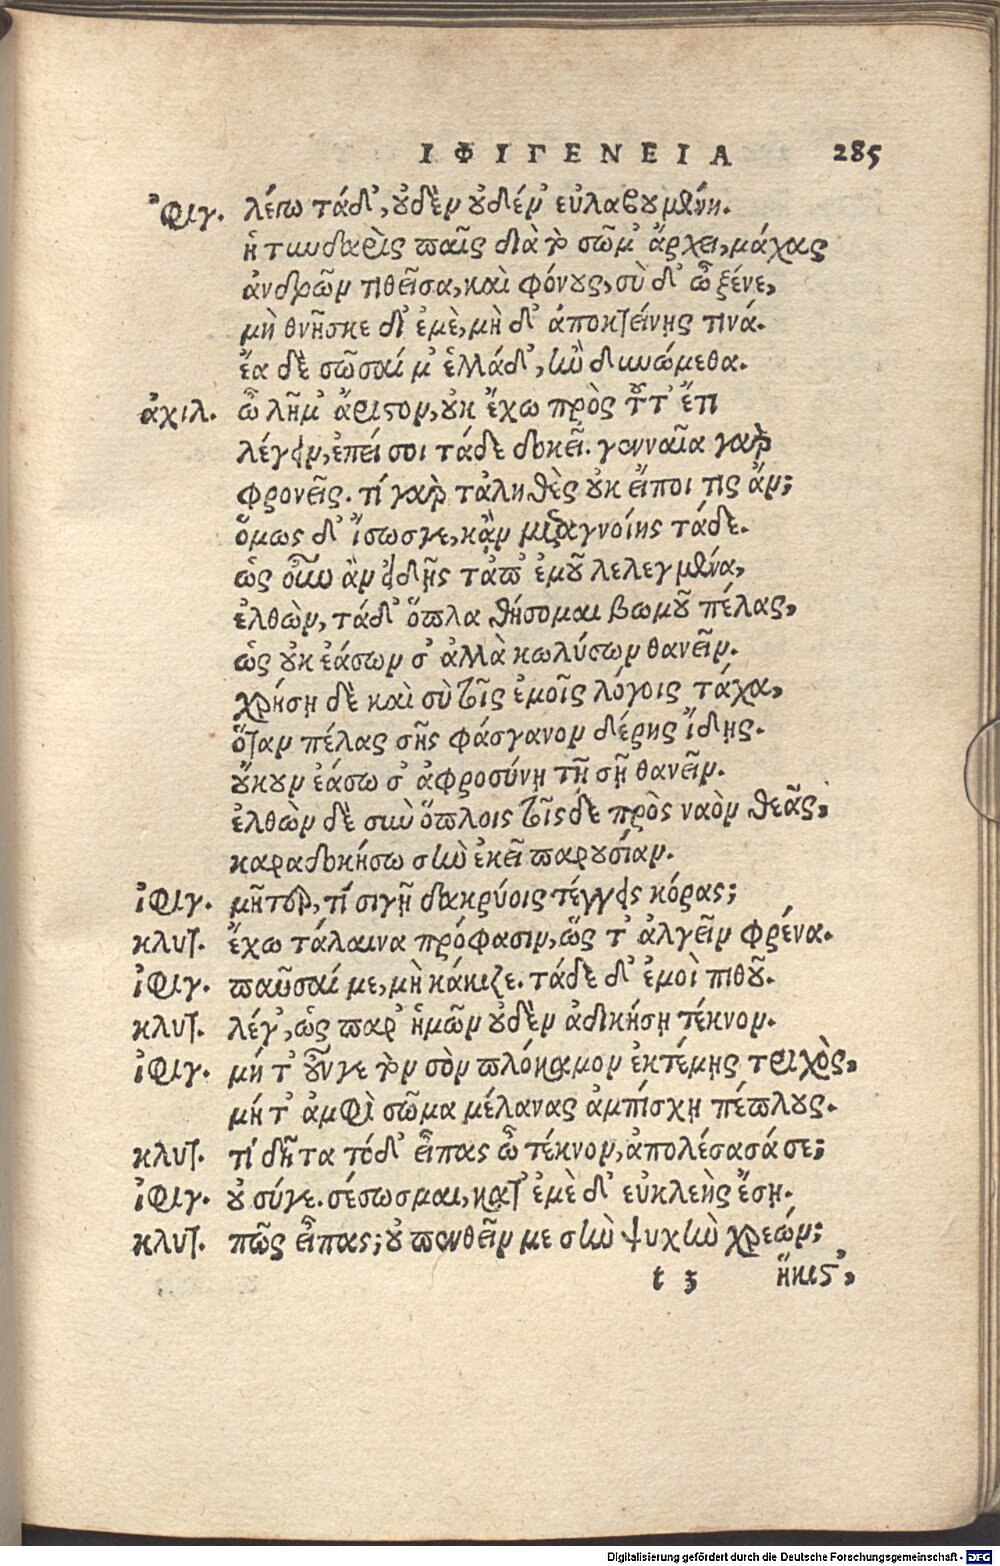 ΙΦΙΓΕΝΕΙΑ 285
ἰφιγ. λέγω τάδ', οὐδὲν οὐδέν' εὐλαβουμένη.
ἡ τυνδαρὶς παῖς διὰ τὸ σῶμ' ἄρχει, μάχας
ἀνδρῶν τιθεῖσα, καὶ φόνους, σὺ δ' ὦ ξένε,
μὴ θνῆσκε δι' ἐμὲ, μὴ δ' ἀποκτείνῃς τινά.
ἔα δὲ σῶσαί μ' ἑλλάδ', ἢν δυνώμεθα.
ἀχιλ. ὦ λῆμ' ἄριστον, οὐκ ἔχω πρὸς τοῦτ' ἔτι
λέγειν, ἐπεί σοι τάδε δοκεῖ. γενναῖα γὰρ
φρονεῖς. τί γὰρ τἀληθὲς οὐκ εἴποι τις ἄν;
ὅμως δ' ἴσως γε, κἂν μεταγνοίης τάδε.
ὡς οὖν ἂν εἰδῇς τἀπ' ἐμοῦ λελεγμένα,
ἐλθὼν, τάδ' ὅπλα θήσομαι βωμοῦ πέλας,
ὡς οὐκ ἐάσων σ' ἀλλὰ κωλύσων θανεῖν.
χρήσῃ δὲ καὶ σὺ τοῖς ἐμοῖς λόγοις τάχα,
ὅταν πέλας σῆς φάσγανον δέρης ἴδῃς.
οὔκουν ἐάσω σ' ἀφροσύνῃ τῇ σῇ θανεῖν.
ἐλθὼν δὲ σὺν ὅπλοις τοῖς δε πρὸς ναὸν θεᾶς,
καραδοκήσω σὴν ἐκεῖ παρουσίαν.
ἰφιγ. μῆτερ, τί σιγῇ δακρύοις τέγγεις κόρας;
κλυτ. ἔχω τάλαινα πρόφασιν, ὥς τ' ἀλγεῖν φρένα.
ἰφιγ. παῦσαί με, μὴ κάκιζε. τάδε δ' ἐμοὶ πιθοῦ.
κλυτ. λέγ', ὡς παρ' ἡμῶν οὐδὲν ἀδικήσῃ τέκνον.
ἰφιγ. μή τ' οὖν γε τὸν σὸν πλόκαμον ἐκτέμῃς τριχὸς,
μή τ' ἀμφὶ σῶμα μέλανας ἀμπίσχῃ πέπλους.
κλυτ. τί δῆτα τόδ' εἶπας ὦ τέκνον, ἀπολέσασά σε;
ἰφιγ. οὐ σύγε. σέσωσμαι, κατ' ἐμὲ δ' εὐκλεὴς ἔσῃ.
κλυτ. πῶς εἶπας; οὐ πενθεῖν με σὴν ψυχὴν χρεών;
t 3 ἥκιστ',
Digitalisierung gefördert durch die Deutsche Forschungsgemeinschaft - DFG